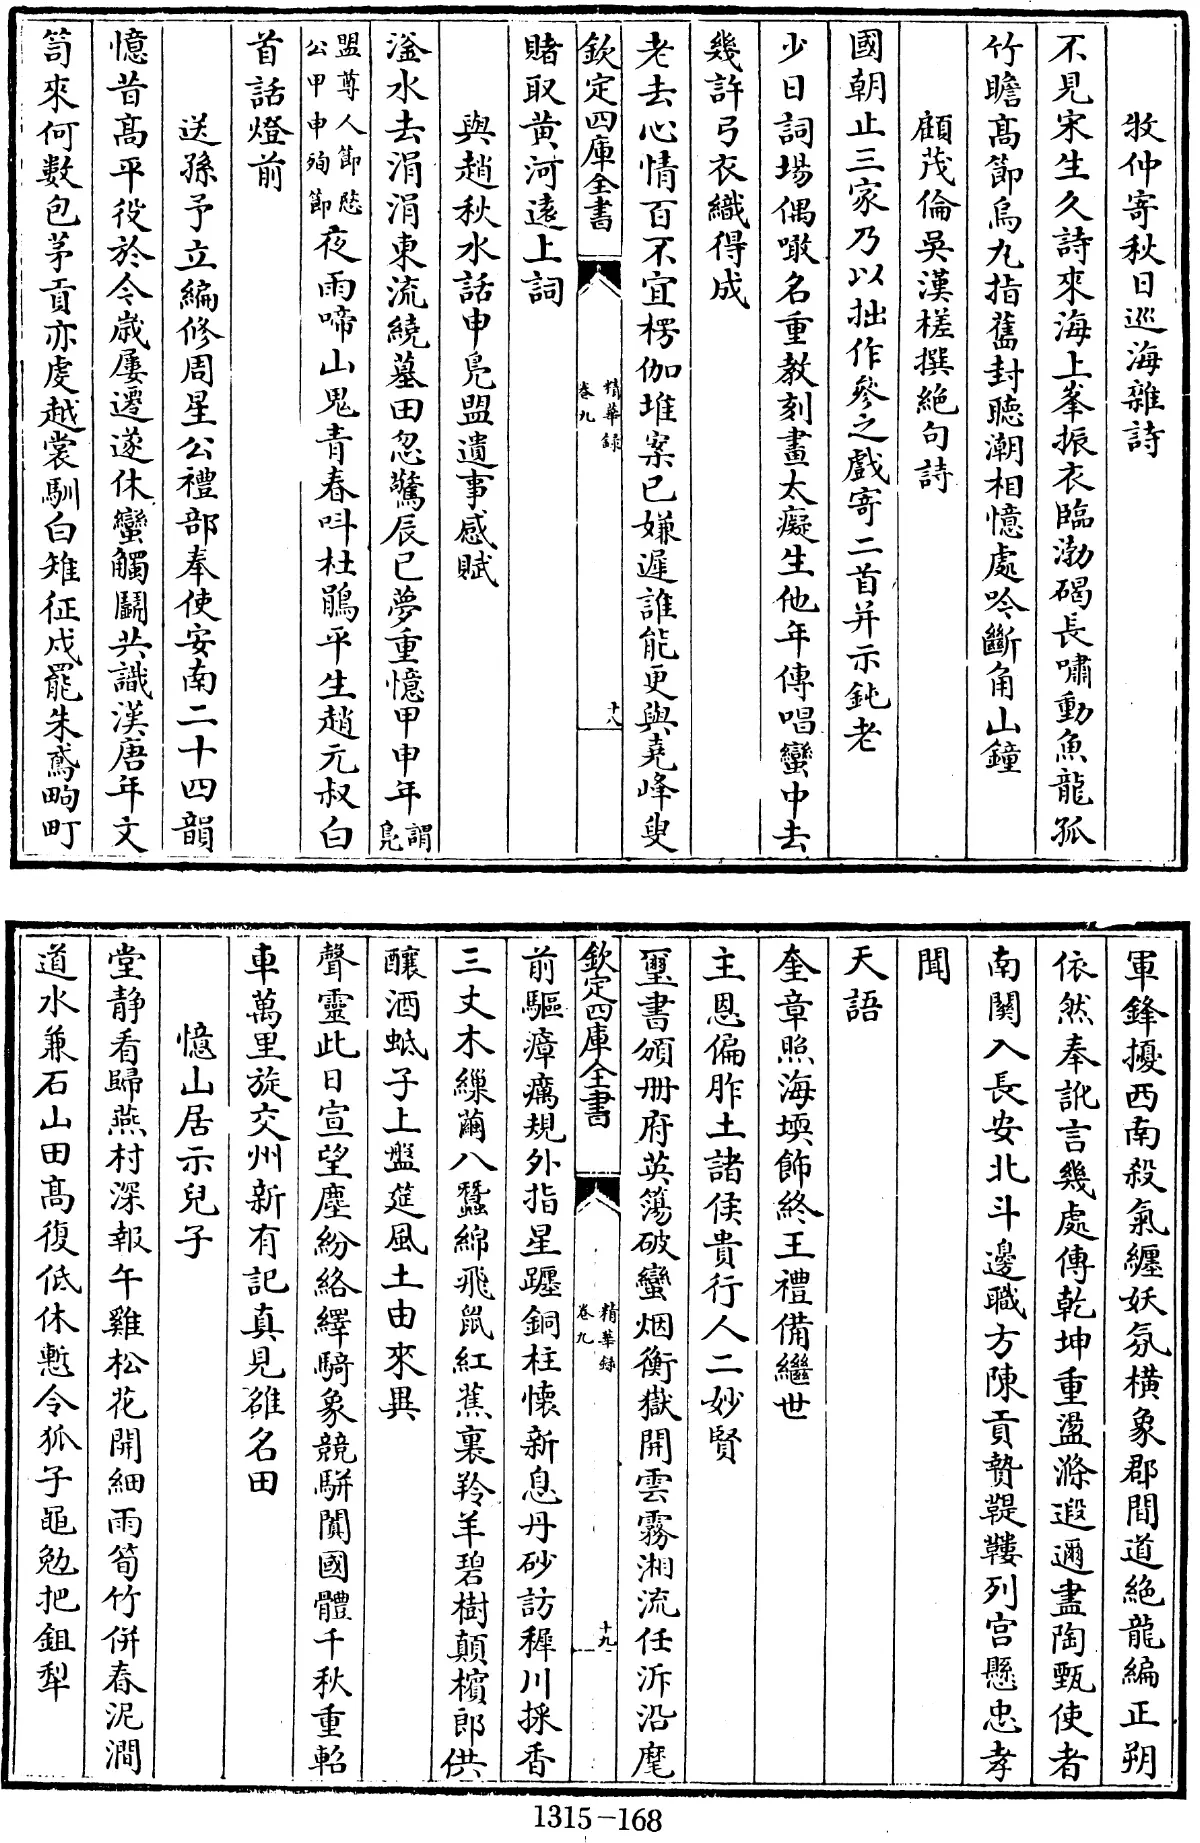 牧仲寄秋日巡海雜詩
不見宋生久詩來海上峯振衣臨渤碣長嘯動魚龍孤
竹瞻高節烏丸指舊封聽潮相憶處吟斷角山鐘
顧茂倫吳漢槎撰絕句詩
國朝止三家乃以拙作參之戲寄二首并示鈍老
少日詞場偶噉名重教刻畫太癡生他年傳唱蠻中去
幾許弓衣織得成
老去心情百不宜楞伽堆案已嫌遲誰能更與堯峰叟
欽定四庫全書
精華錄
卷九
十八
賭取黃河遠上詞
與趙秋水話申鳧盟遺事感賦
滏水去涓涓東流繞墓田忽驚辰巳夢重憶甲申年謂鳧
盟尊人節愍
公甲申殉節夜雨啼山鬼青春叫杜鵑平生趙元叔白
首話燈前
送孫予立編修周星公禮部奉使安南二十四韻
憶昔高平役於今歲屢遷遂休蠻觸鬬共識漢唐年文
笥來何數包茅貢亦虔越裳馴白雉征戍罷朱鳶畇町
軍鋒擾西南殺氣纏妖氛橫象郡間道絶龍編正朔
依然奉訛言幾處傳乾坤重盪滌遐邇盡陶甄使者
南關入長安北斗邊職方陳貢贄鞮鞻列宮懸忠孝
聞
天語
奎章照海壖飾終王禮備繼世
主恩偏胙土諸侯貴行人二妙賢
璽書頒冊府英簜破蠻烟衡嶽開雲霧湘流任泝沿麾
欽定四庫全書
精華錄
卷九
十九
前驅瘴癘規外指星躔銅柱懷新息丹砂訪穉川採香
三丈木繅繭八蠶綿飛鼠紅蕉裏羚羊碧樹顛檳郎供
釀酒蚳子上盤筵風土由來異
聲靈此日宣望塵紛絡繹騎象競駢闐國體千秋重軺
車萬里旋交州新有記真見雒名田
憶山居示兒子
堂靜看歸燕村深報午雞松花開細雨筍竹併春泥澗
道水兼石山田高復低休慙令狐子黽勉把鉏犁
1315-168